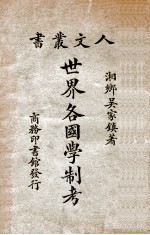 人文叢書
湘鄉吳家鎮著
世界各國學制考
商務印書館發行